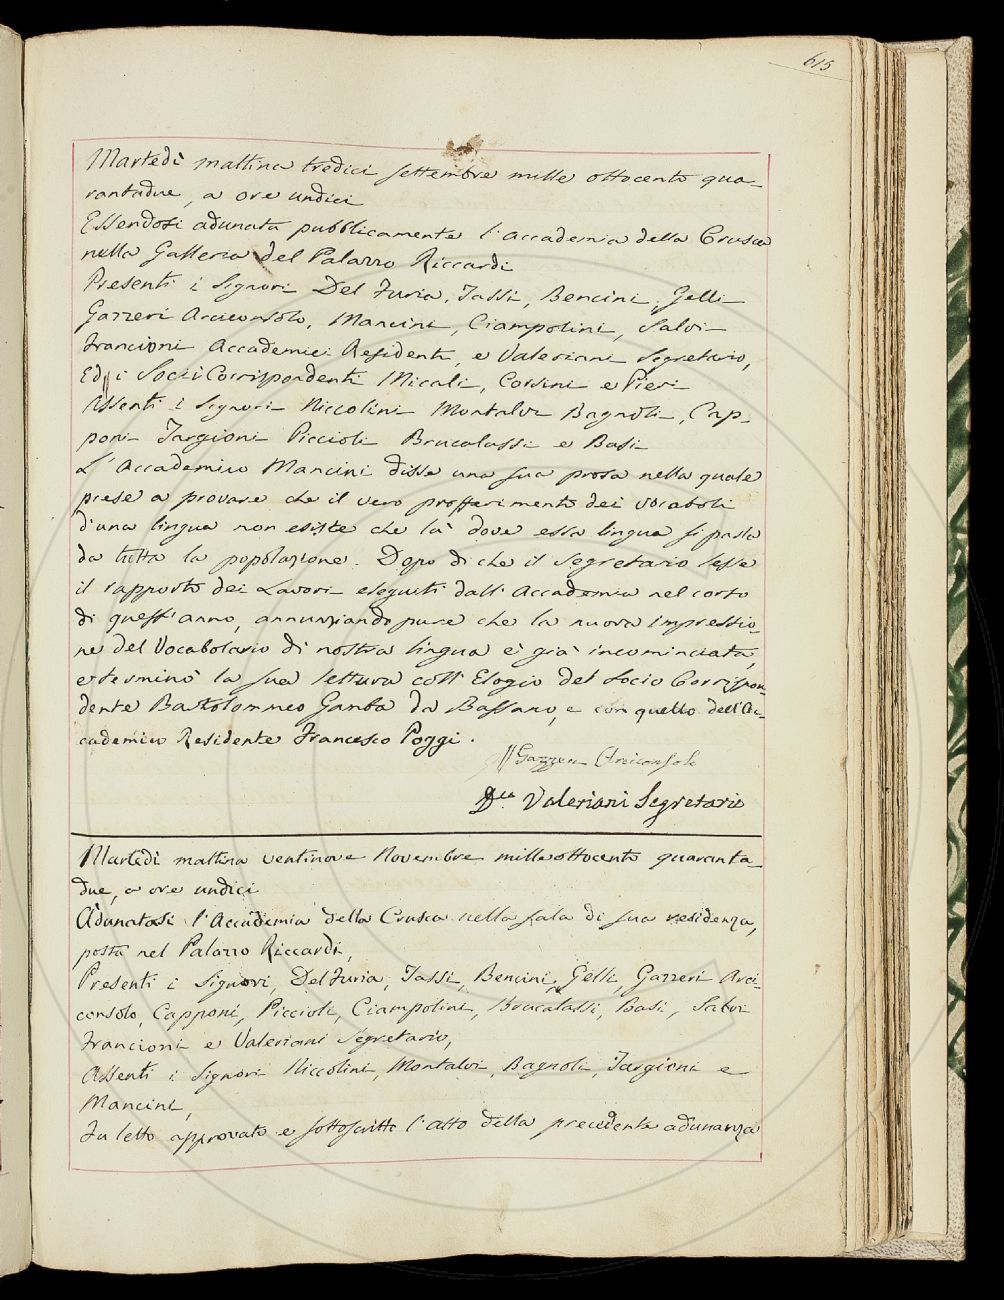 615
Martedì mattina tredici settembre mille ottocento qua-
rantadue, a ore undici
Essendosi adunata pubblicamente l'accademia della Crusca
nella Galleria del Palazzo Riccardi
Presenti i Signori Del Furia, Tassi, Bencini, Gelli
Gazzeri Arciconsolo, Mancini, Ciampolini, Salvi
Francioni Accademici Residenti, e Valeriani Segretario,
Ed i Socii Corrispondenti Micali, Corsini e Pieri
Assenti i Signori Niccolini Montalvi Bagnoli, Cap-
poni Targioni Piccioli Brucalassi e Basi
L'Accademico Mancini disse una sua prosa nella quale
prese a provare che il vero profferimento dei vocaboli
d'una lingua non esiste che là dove essa lingua si parla
da tutta la popolazione. Dopo di che il Segretario lesse
il rapporto dei Lavori eseguiti dall'Accademia nel corso
di quest'anno, annunziando pure che la nuova impressio-
ne del Vocabolario di nostra lingua è già incominciata,
e terminò la sua lettura coll'Elogio del Socio Corrispon-
dente Bartolommeo Gamba da Bassano, e con quello dell'Ac-
cademico Residente Francesco Poggi.
Gazzeri Arciconsolo
Valeriani Segretario
Martedì mattina ventinove Novembre mille ottocento quaranta-
due, a ore undici
Adunatasi l'Accademia della Crusca nella sala di sua residenza,
posta nel Palazzo Riccardi,
Presenti i Signori, Del Furia, Tassi, Bencini, Gelli, Gazzeri Arci-
consolo, Capponi, Piccioli, Ciampolini, Brucalassi, Basi, Salvi
Francioni e Valeriani Segretario,
Assenti i Signori Niccolini, Montalvi, Bagnoli, Targioni e
Mancini,
Fu letto approvato e sottoscritto l'atto della precedente adunanza